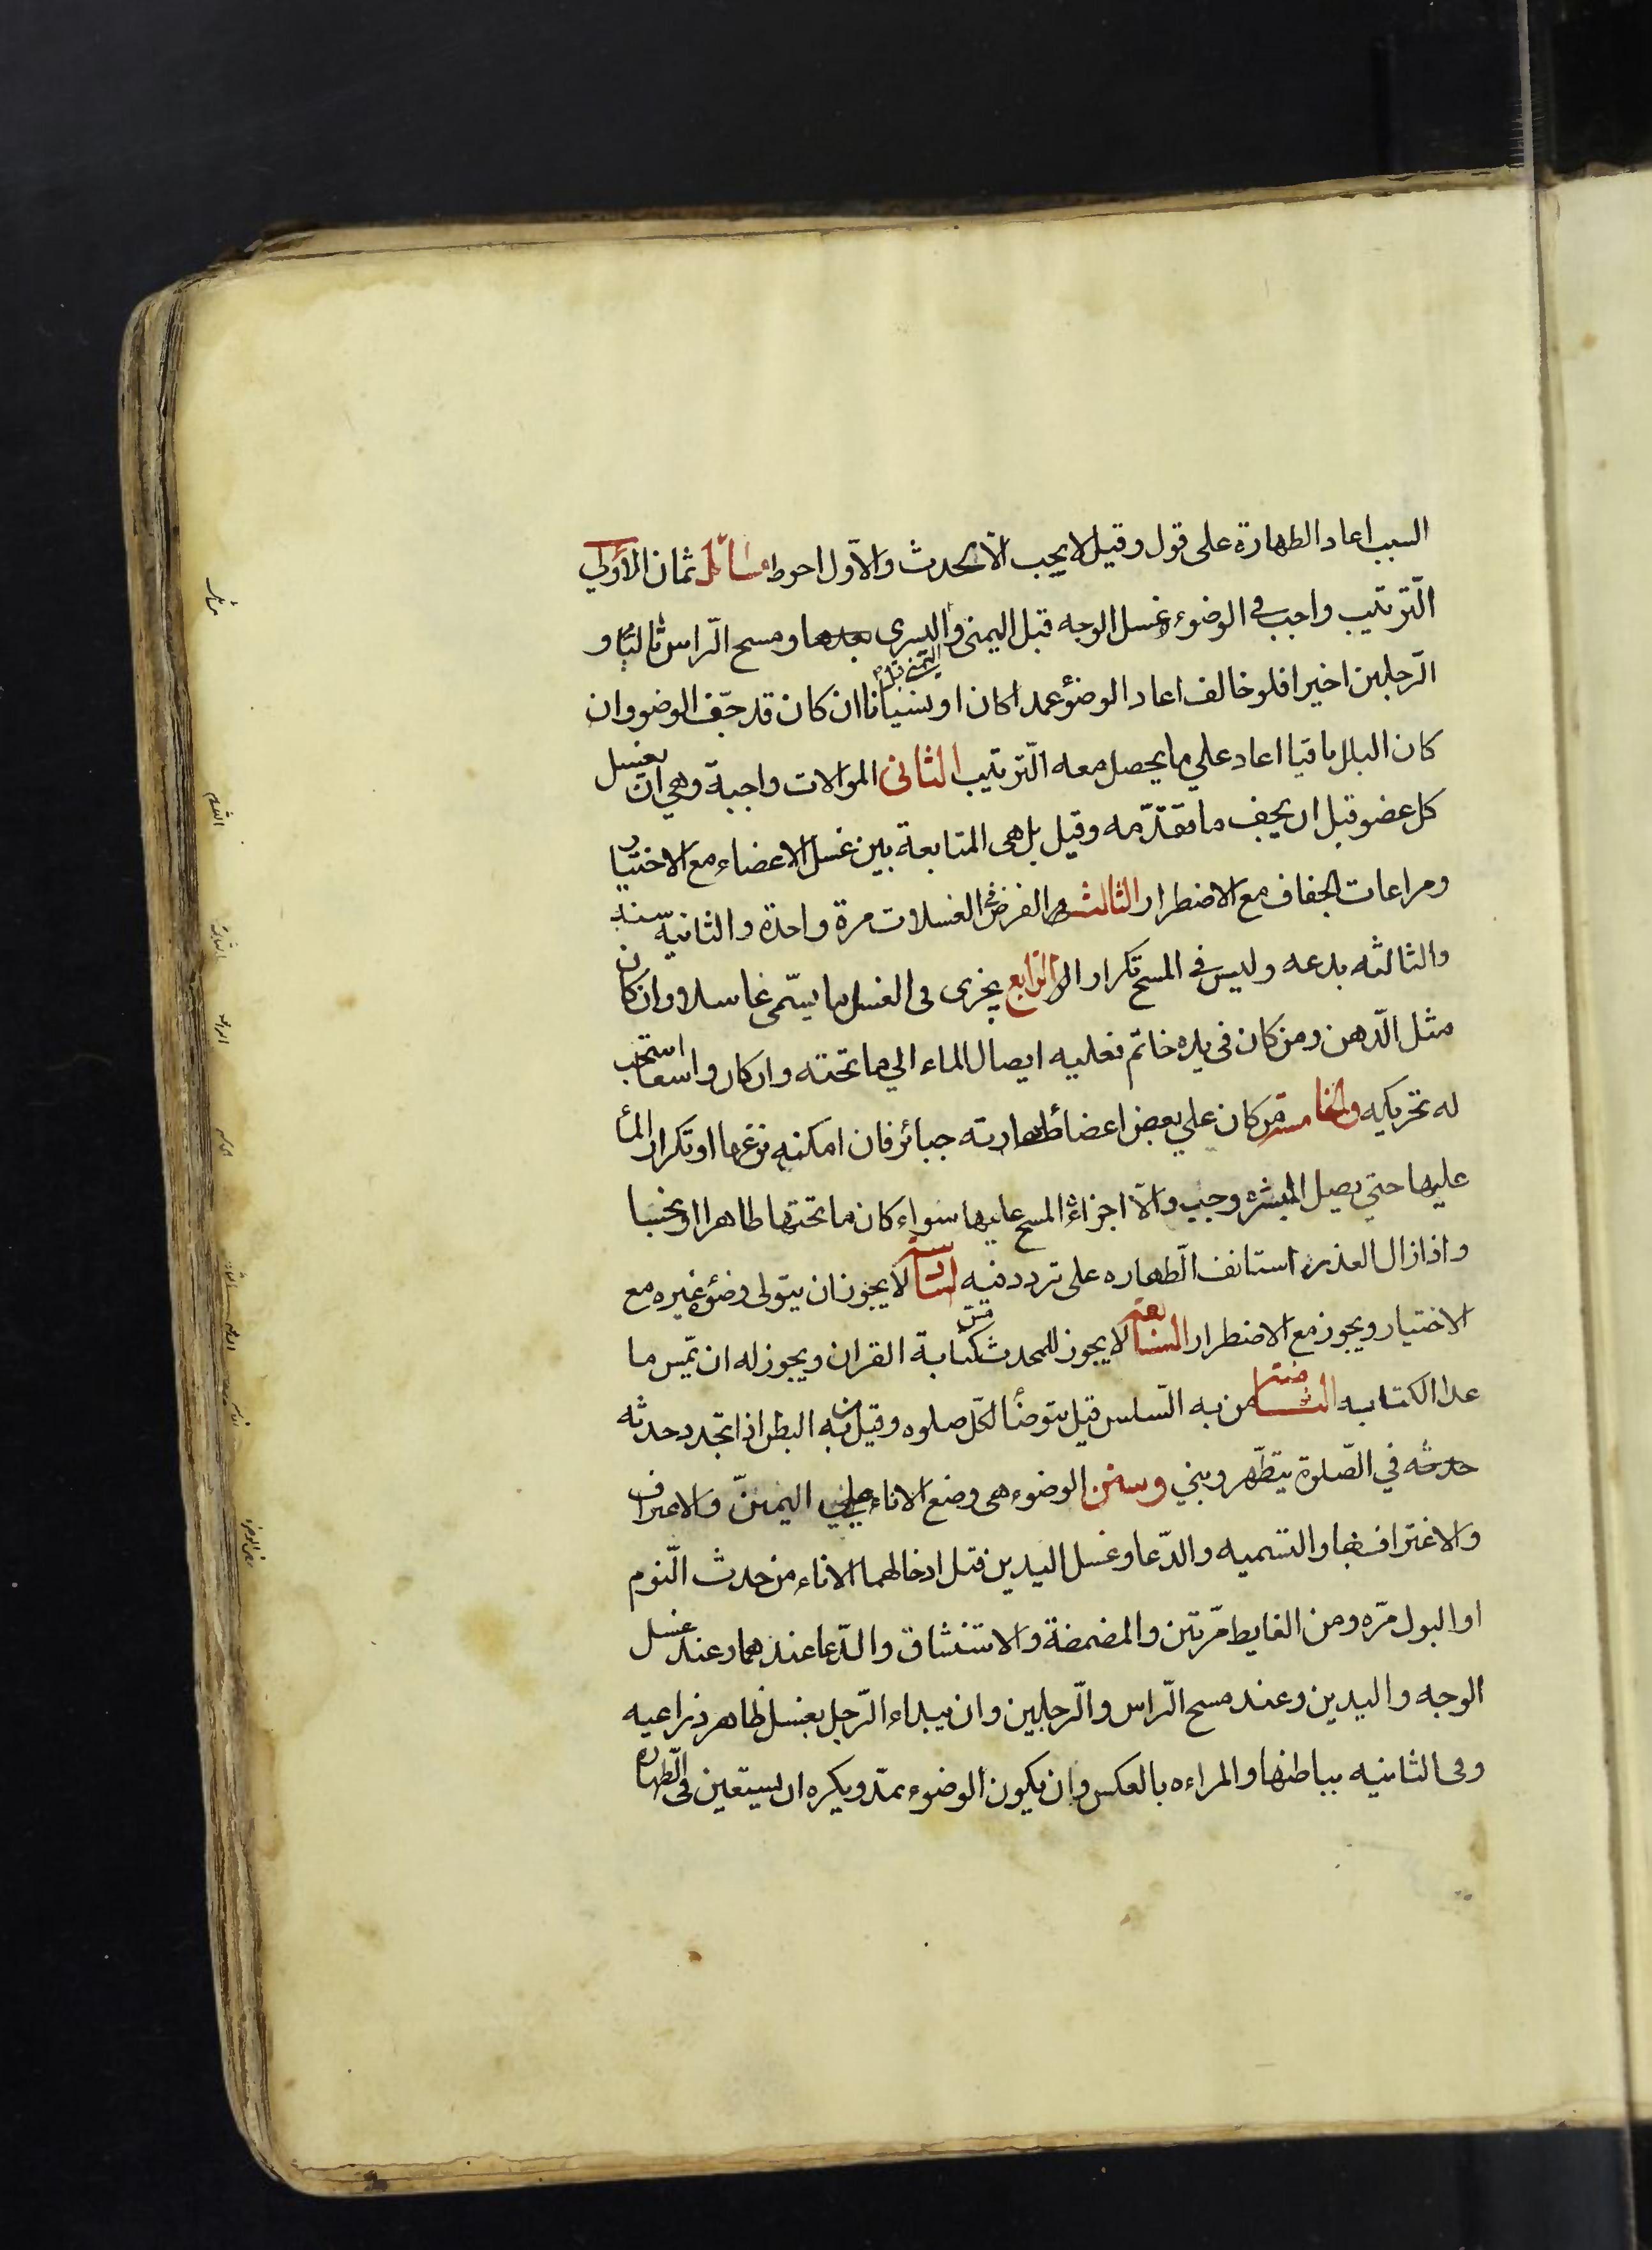 السبب اعاد الطهارة على قول وقيل لا يجب الّا لحدث والاوّل احوط مسائل ثمان الاولي
الترتيب واجب في الوضوء غسل الوجه قبل اليمنى واليسرى بعدها ومسح الرّاس ثالثا و
اليمنى قبل
الرّجلين اخيرا فلو خالف اعاد الوضؤ عمدا كان او نسيانا ان كان قد جفّ الوضو وان
كان البلل باقيا اعاد علي ما يحصل معه الّترتيب الثانى الموالات واجبة وهي ان يغسل
كل عضو قبل ان يجف ما تقدّمه وقيل بل هى المتابعة بين غسل الاعضاء مع الاختيار
ومراعات الجفاف مع الاضطرار الثالث الفرض الغسلات مرة واحدة والثانيّة سنة
والثالثه بدعه وليس في المسح تكرار الرّابع يجزى فى الغسل ما يسمّى غاسلا وان كان
مثل الّدهن ومن كان فى يده خاتم فعليه ايصال الماء الي ما تحته وان كان واسعا استحب
له تحريكه والخامسة من كان علي بعض اعضا طهارته جبائر فان امكنه نزعها او تكرار المأ
عليها حتي يصل البشره وجب والّا اجزاء المسح عليها سواء كان ما تحتها طاهرا او نجسا
واذا زال العذر استانف الّطهاره على تردد فيه السادسة لا يجوز ان يتولى وضؤه غيره مع
الاختيار ويجوز مع الاضطرار السابعة لا يجوز للمحدث مس كتابة القران ويجوز له ان يمّس ما
عدا الكتابه الثامنة من به السّلس قيل يتوضأ لكلّ صلوه وقيل من به البطن اذا تجدد حدثه
حدثه في الصّلوة يتطّهر ويبني وسنن الوضوء هى وضع الاناء علي اليمين والاغتراف
والاغتراف بها والتسميه والدّعا وغسل اليدين قبل ادخالهما الاناء من حدث الّنوم
او البول مرّه ومن الغايط مرّتين والمضمضة والاستنشاق والدّعا عندهما وعند غسل
الوجه واليدين وعند مسح الّراس والّرجلين وان يبداء الّرجل بغسل ظاهر ذراعيه
وفى الثانيه بباطنها والمراءه بالعكس وان يكون الوضوء بمدّ ويكره ان يستعين فى الّطهاره